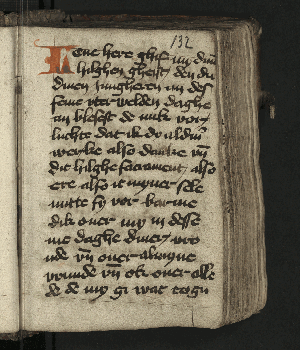 132
Leve here ghif my dinē
hilghen gheist den du
dinen jungheren in des
seme vter welden daghe
an bleset de make vor
luchte dat ik do aldinē
werke also danne vn̄
dit hilghe sacrament also
ere also it myner sele
nutte sy vor barme
dik ouer my in desse
me daghe diner wo
nde vn̄ ouer al myne
vrunde vn̄ ok ouer alle
de de my gi wat to gu